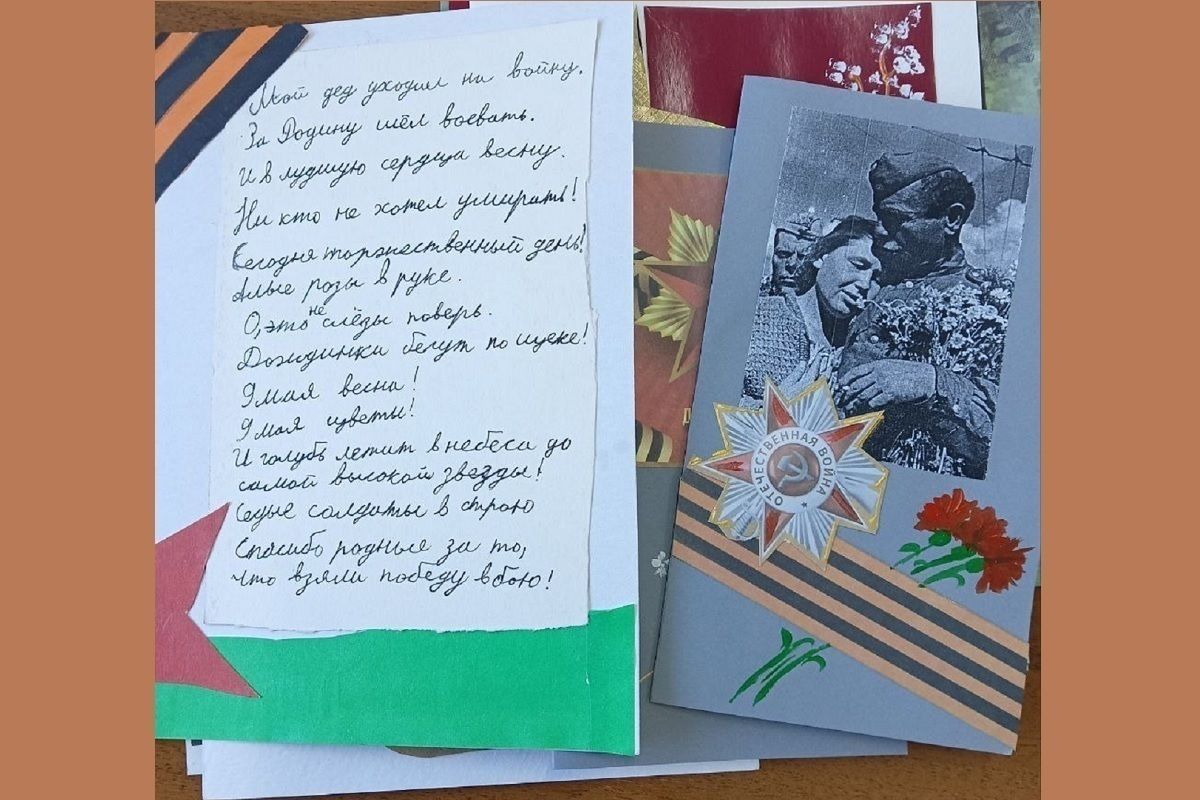 Мой дед уходил на войну.
За Родину шёл воевать.
И в лучшую сердца весну.
Ни кто не хотел умирать!
Сегодня торжественный день!
Алые розы в руке.
О, это не слёзы поверь.
Дождинки бегут по щеке!
9 мая весна!
9 мая цветы!
И голубь летит в небеса до
самой высокой звезды!
Седые солдаты в строю
Спасибо родные за то,
что взяли победу в бою!
ОТЕЧЕСТВЕННАЯ ВОЙНА